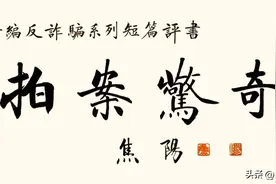 編反詐騙系列短篇評書
拍案驚奇
焦陽
头条 @焦阳